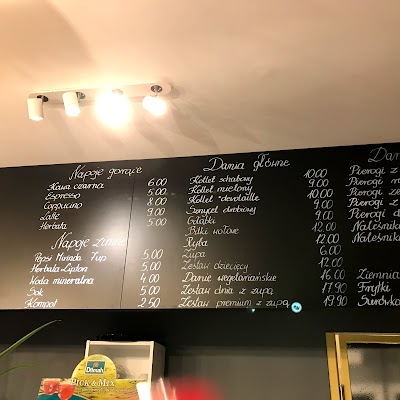 Napoje gorące
Kawa czarna 6.00
Espresso 5.00
Cappucino 8.00
Latte 9.00
Herbata 5.00
Napoje zimne
Pepsi Mirinda 7up 5.00
Herbata Lipton 5.00
Woda mineralna 4.00
Sok 5.00
Kompot 2.50
Dania główne
Kotlet schabowy 10.00
Kotlet mielony 9.00
Kotlet devolaille 10.00
Sznycel drobiowy 9.00
Gołąbki 9.00
Bitki wołowe 12.00
Ryba 12.00
Zupa 6.00
Zestaw dziecięcy 12.00
Danie wegetariańskie 16.00
Zestaw dnia z zupą 17.90
Zestaw premium z zupą 19.90
Dan
Pierogi z
Pierogi
Pierogi ze
Pierogi
Naleśnik
Naleśnik
Ziemnia
Frytki
Surówka
Dilmah
PICK & MIX